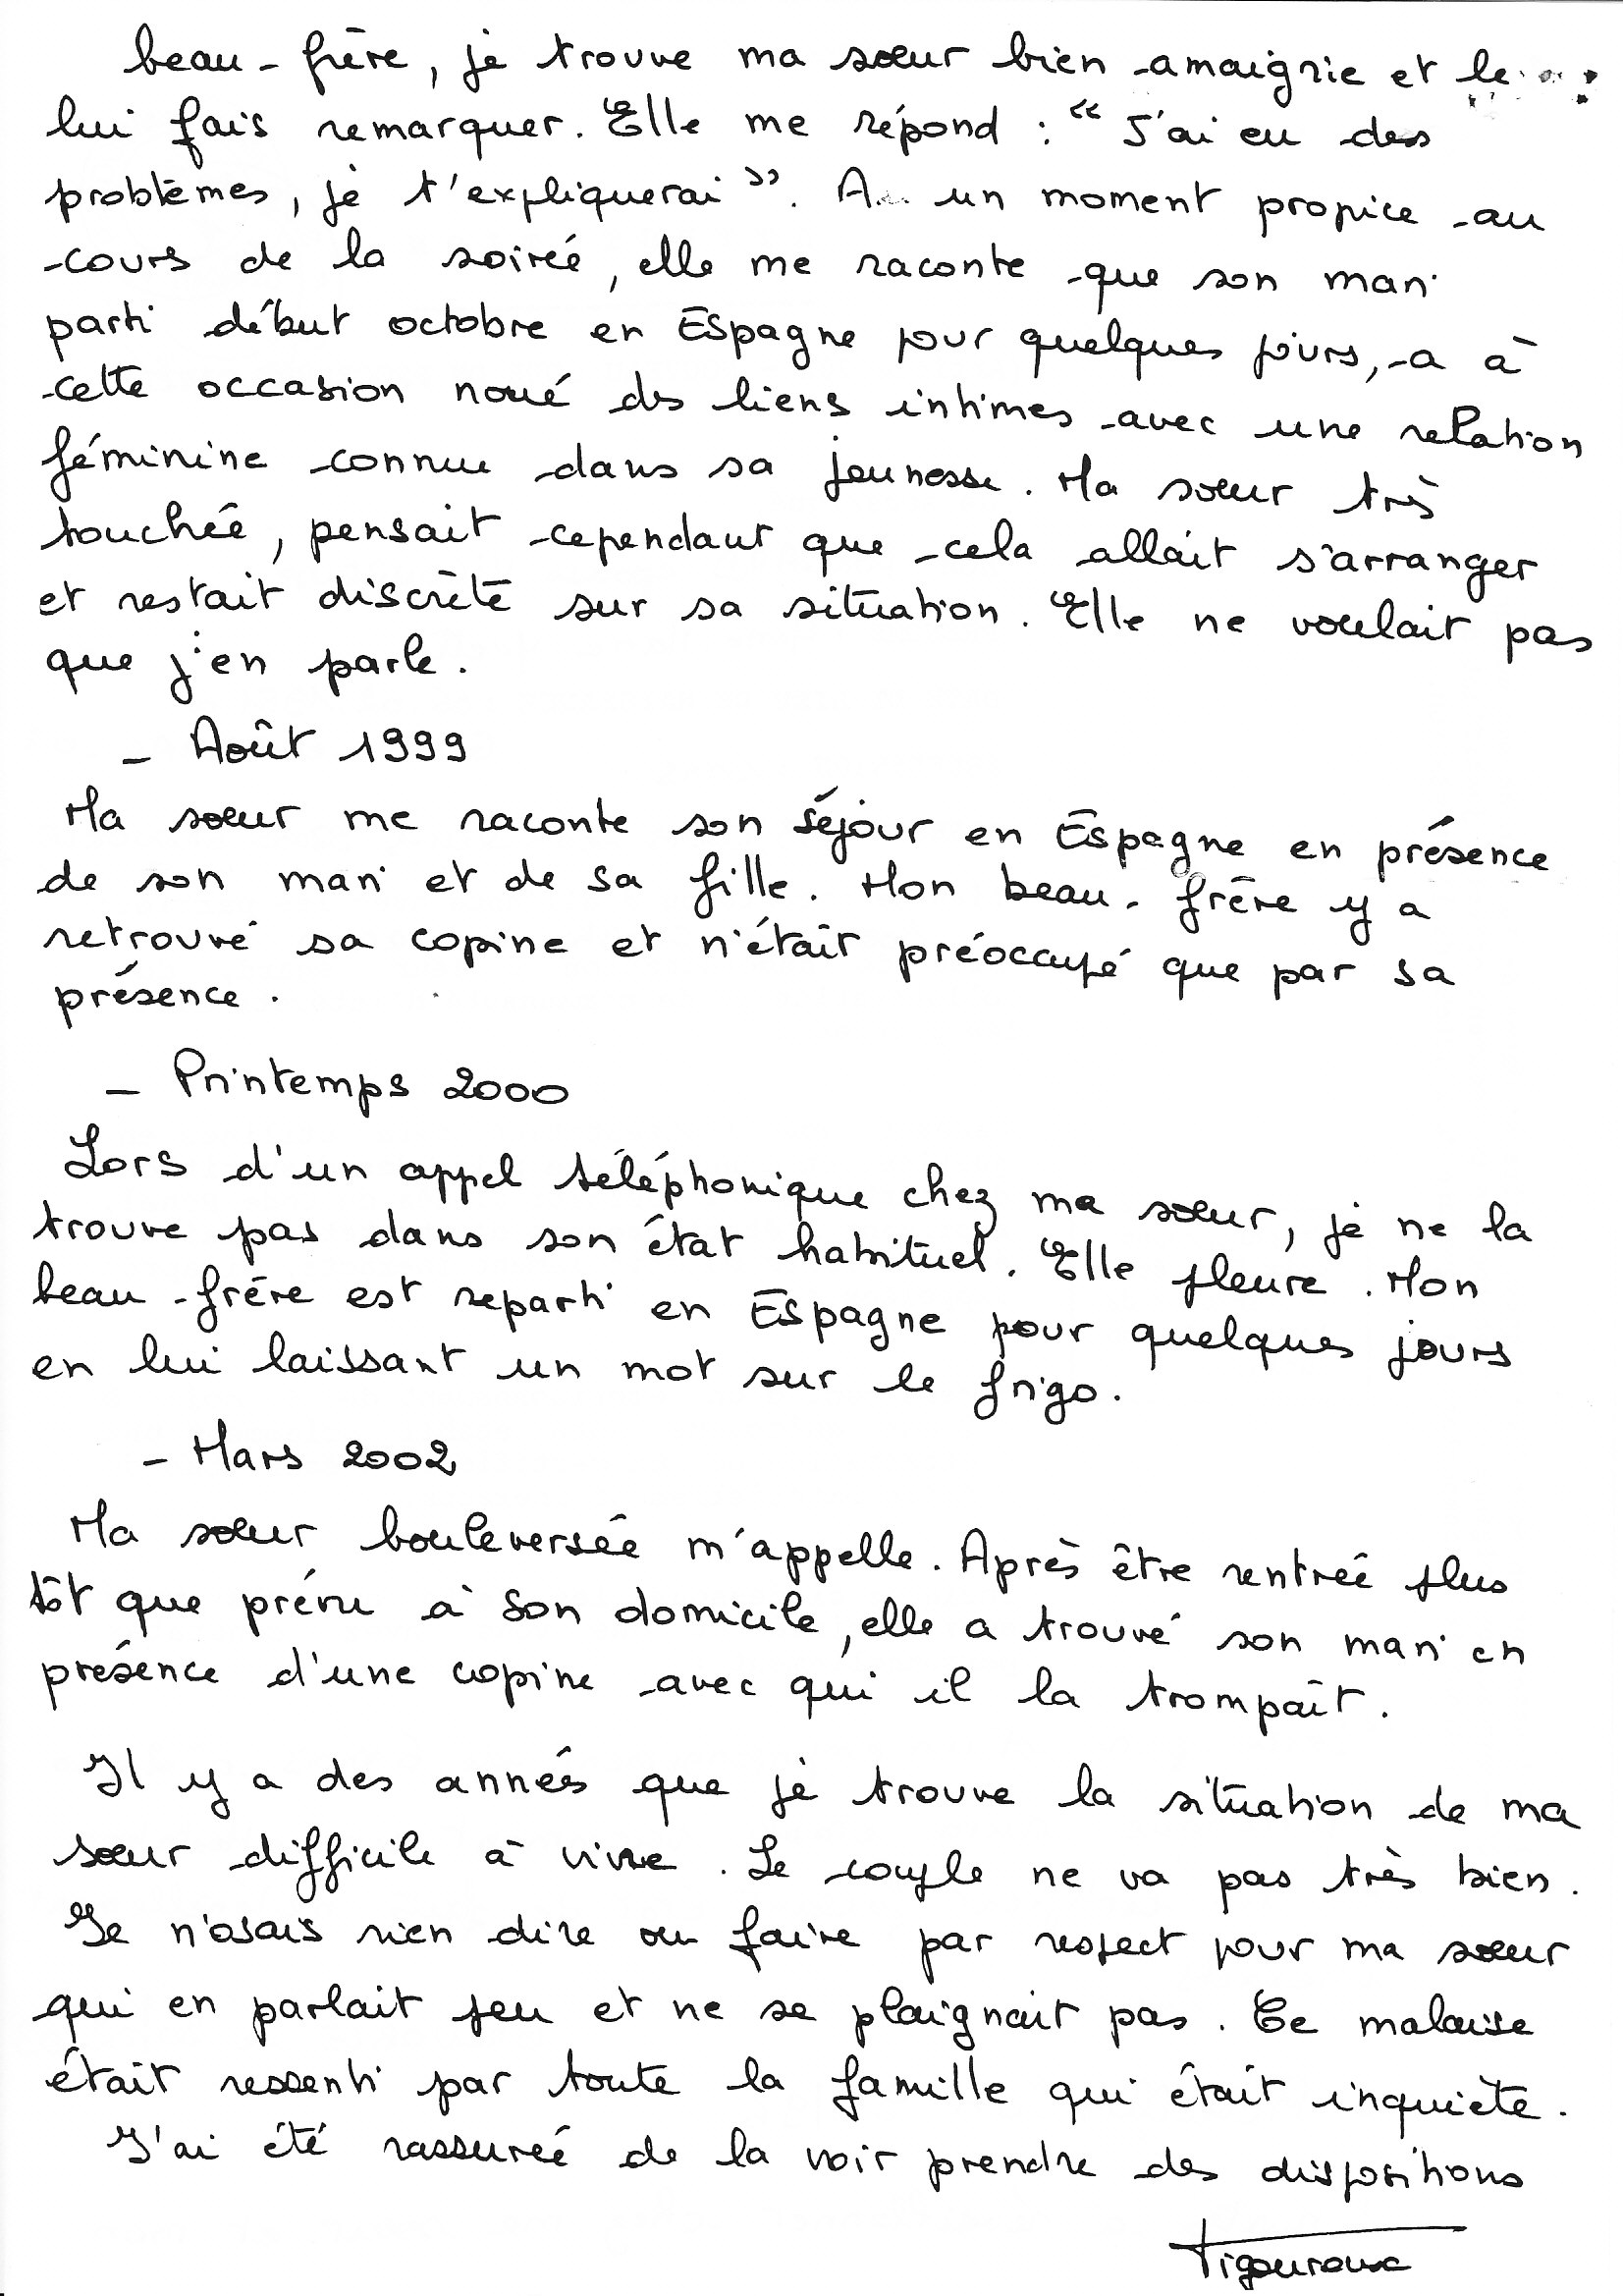 beau-frère, je trouve ma sœur bien amaigrie et le
lui fais remarquer. Elle me répond : "J'ai eu des
problèmes, je t'expliquerai". A un moment propice au
cours de la soirée, elle me raconte que son mari
parti début octobre en Espagne pour quelques jours, a à
cette occasion noué des liens intimes avec une relation
féminine connue dans sa jeunesse. Ma sœur très
touchée, pensait cependant que cela allait s'arranger
et restait discrète sur sa situation. Elle ne voulait pas
que j'en parle.
- Août 1999
Ma sœur me raconte son séjour en Espagne en présence
de son mari et de sa fille. Mon beau-frère y a
retrouvé sa copine et n'était préoccupé que par sa
présence.
- Printemps 2000
Lors d'un appel téléphonique chez ma sœur, je ne la
trouve pas dans son état habituel. Elle pleure. Mon
beau-frère est reparti en Espagne pour quelques jours
en lui laissant un mot sur le frigo.
- Mars 2002
Ma sœur bouleversée m'appelle. Après être rentrée plus
tôt que prévu à son domicile, elle a trouvé son mari en
présence d'une copine avec qui il la trompait.
Il y a des années que je trouve la situation de ma
sœur difficile à vivre. Le couple ne va pas très bien.
Je n'osais rien dire ou faire par respect pour ma sœur
qui en parlait peu et ne se plaignait pas. Ce malaise
était ressenti par toute la famille qui était inquiète.
J'ai été rassurée de la voir prendre des dispositions